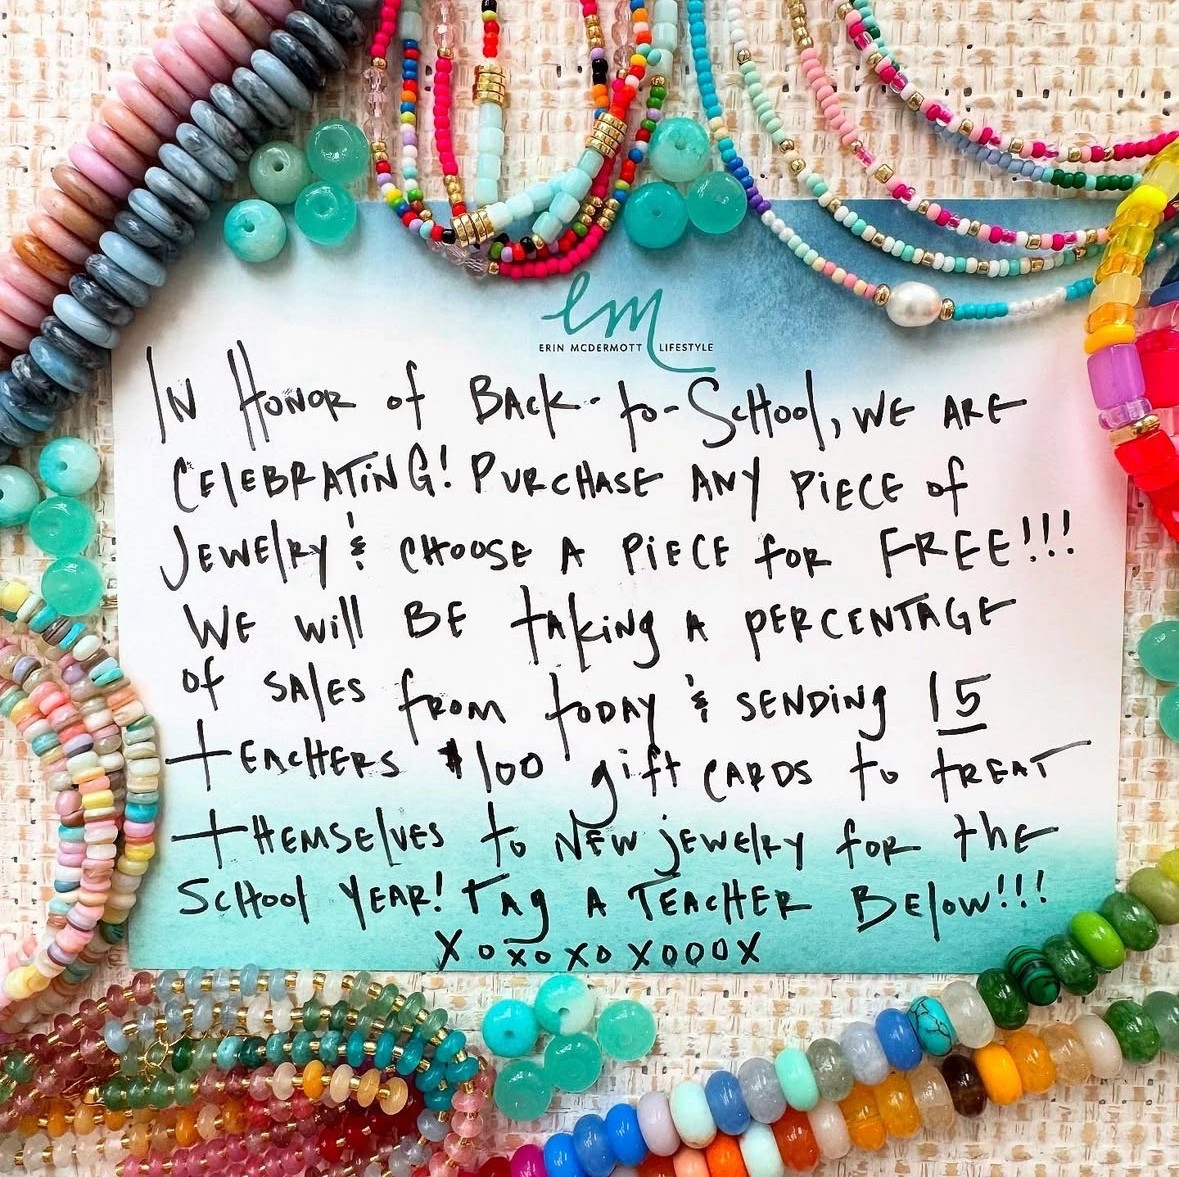 em
ERIN MCDERMOTT LIFESTYLE
IN HONOR of BACK-to-SCHOOL, WE ARE
CELEBRATING! PURCHASE ANY PIECE of
JEWELRY & CHOOSE A PIECE for FREE!!!
WE will BE taking A PERCENTAGE
of SALES from today & SENDING 15
TEACHERS $100 gift CARDS to TREAT
THEMSELVES to NEW jEWELRY for the
SCHOOL YEAR! TAg A TEACHER BElow!!!
XOXOXOXOOOX